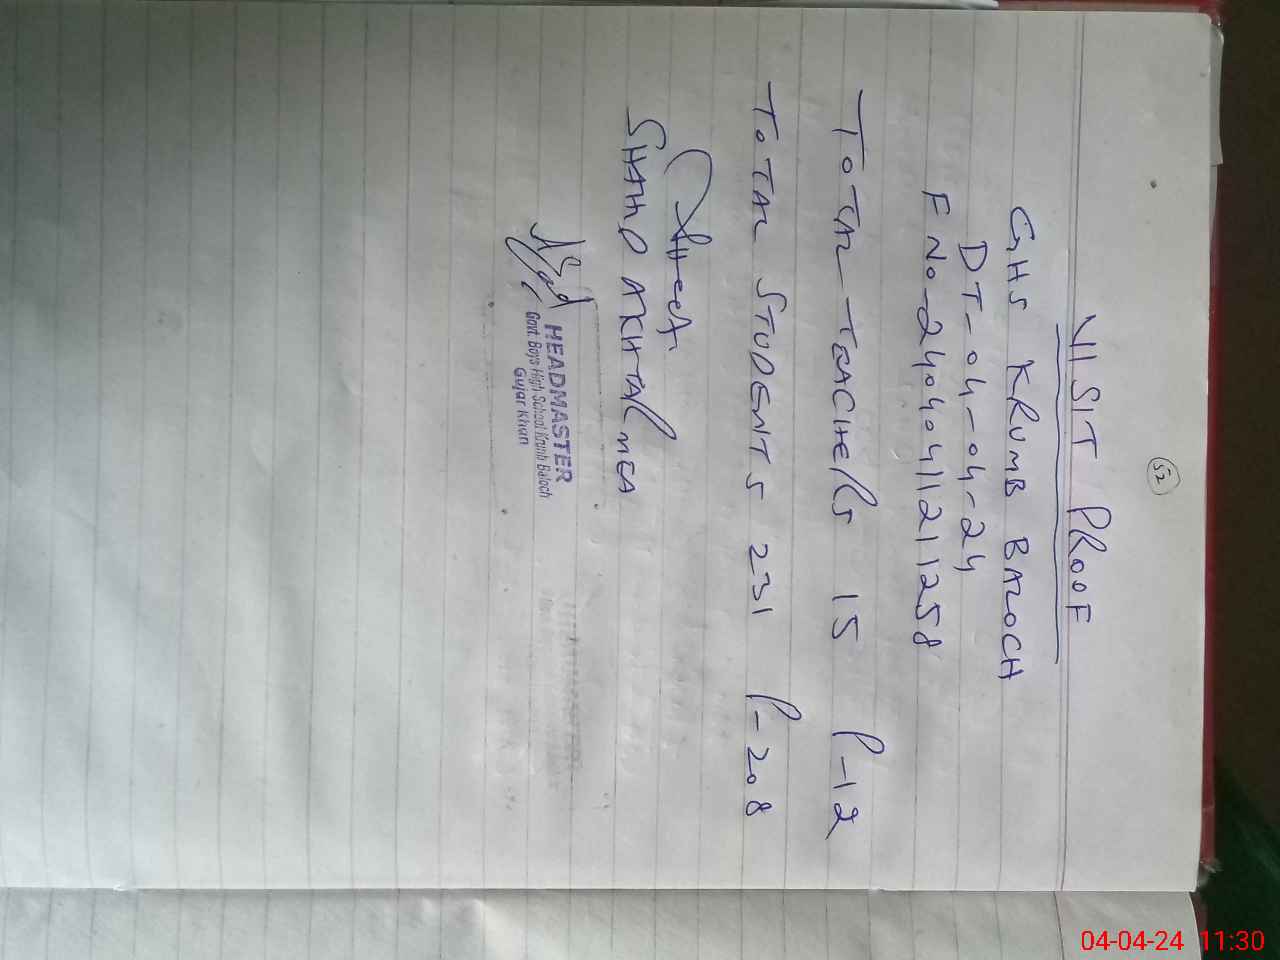 52
VISIT PROOF
GHS KRUMB BALOCH
DT-04-04-24
F No-24040411211258
TOTAL TEACHERS 15 P-12
TOTAL STUDENTS 231 P-208
SHAHID AKHTAR MEA
HEADMASTER
Govt. Boys High School Krunb Baloch
Gujar Khan
04-04-24 11:30